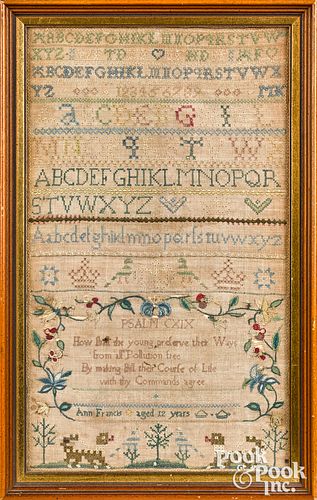 ABCDEFGHIKLMNOPQRSTVW
XYZ
ABCDEFGHIKLMNOPQRSTVWX
YZ 123456789 MK
ABCDEFGHIKLMNOPQR
STVWXYZ
Aabcdefghiklmnopqrſstuvwxyz
PSALM CXIX
How ſhall the young preſerve their Ways
from all Pollution free
By making ſtill their Courſe of Life
with thy Commands agree
Ann Francis aged 12 years
Pook
& Pook
Inc.